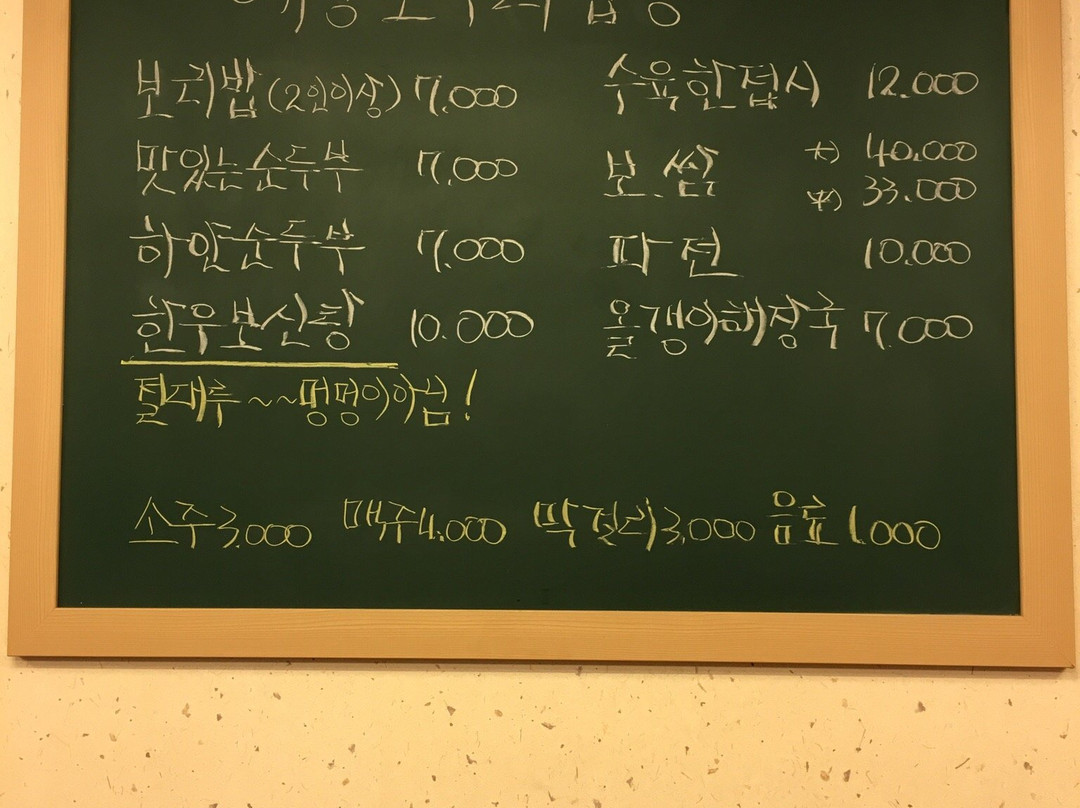 보리밥(2인이상) 7,000
맛있는순두부 7,000
하얀순두부 7,000
한우보신탕 10.000
절대루~~멍멍이아님!
수육한접시 12.000
보쌈 大) 40.000
小) 33.000
파전 10.000
올갱이해장국 7.000
소주3,000 맥주4.000 막걸리3,000 음료1.000